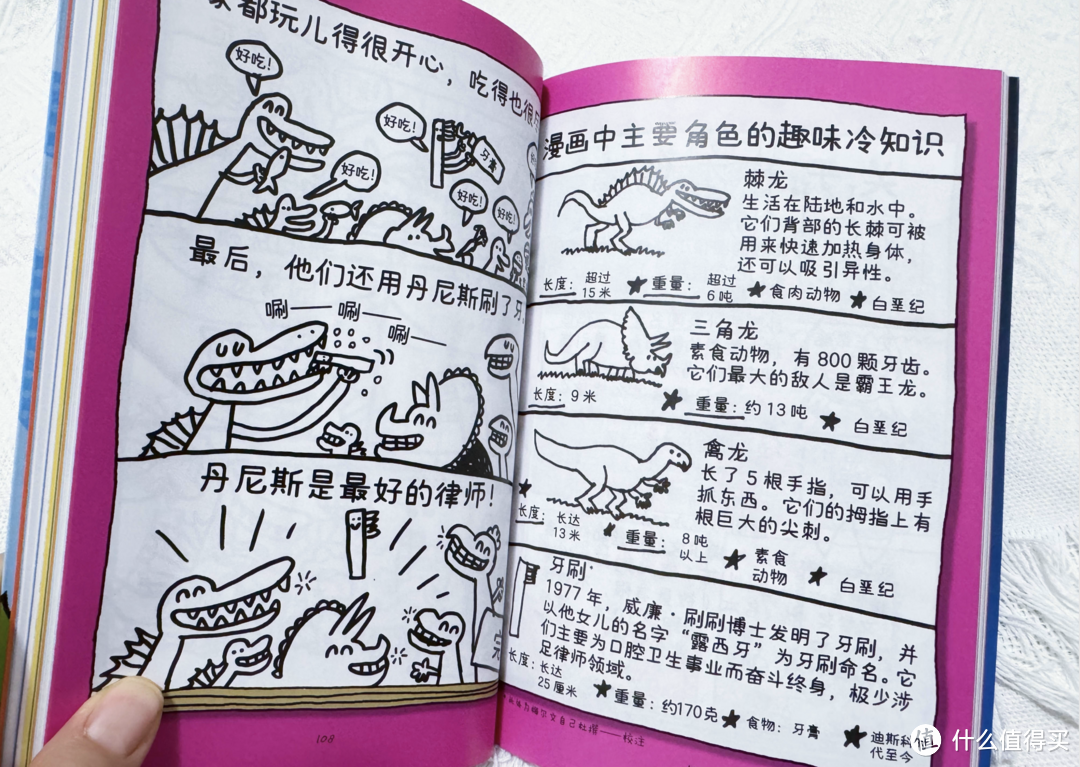 都玩儿得很开心，吃得也很
好吃！
好吃！
牙膏
好吃！
好吃！
好吃！
最后，他们还用丹尼斯刷了牙
唰——唰——
唰——
丹尼斯是最好的律师！
完
108
漫画中主要角色的趣味冷知识
棘龙
生活在陆地和水中。
它们背部的长棘可被
用来快速加热身体，
还可以吸引异性。
长度：超过
15米
重量：超过
6吨
食肉动物
白垩纪
三角龙
素食动物，有800颗牙齿。
它们最大的敌人是霸王龙。
长度：9米
重量：约13吨
白垩纪
禽龙
长了5根手指，可以用手
抓东西。它们的拇指上有
根巨大的尖刺。
长度：长达
13米
重量：8吨
以上
素食
动物
白垩纪
牙刷
1977年，威廉·刷刷博士发明了牙刷，并
以他女儿的名字“露西牙”为牙刷命名。它
们主要为口腔卫生事业而奋斗终身，极少涉
足律师领域。
长度：长达
25厘米
重量：约170克
食物：牙膏
迪斯科
代至今
自己杜撰——校注
值 什么值得买